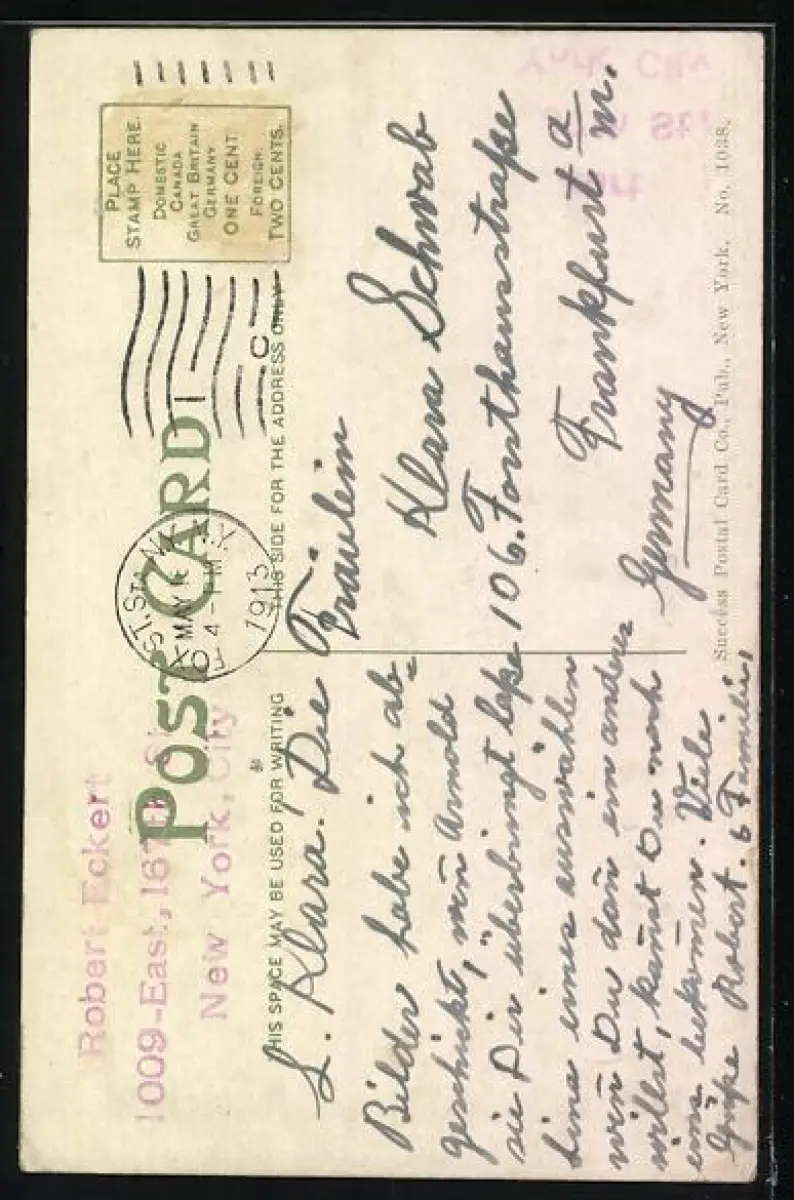 Robert Eckert
1009-East, 167th St.
New York, City
POST CARD
PLACE
STAMP HERE.
DOMESTIC
CANADA
GREAT BRITAIN
GERMANY
ONE CENT
FOREIGN:
TWO CENTS.
ST. STA. N.Y.
MAY
4 - PM
1913
C
HIS SPACE MAY BE USED FOR WRITING
THIS SIDE FOR THE ADDRESS ONLY
L. Klara. Die
Bilder habe ich ab=
geschickt, wen̄ Arnold
sie Dir überbringt laße
Lina eines auswählen
wen̄ Du dan̄ ein anderes
willst, kan̄st Du noch
eins bekom̄en. Viele
Grüße Robert. & Familie,
Fräulein
Klara Schwab
106. Forsthausstraße
Frankfurt a m.
Germany
Success Postal Card Co., Pub., New York. No. 1038.
York City